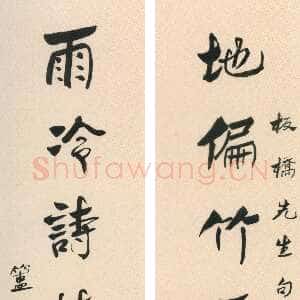 板橋先生句
地偏竹
雨冷詩
Shufawang.CN